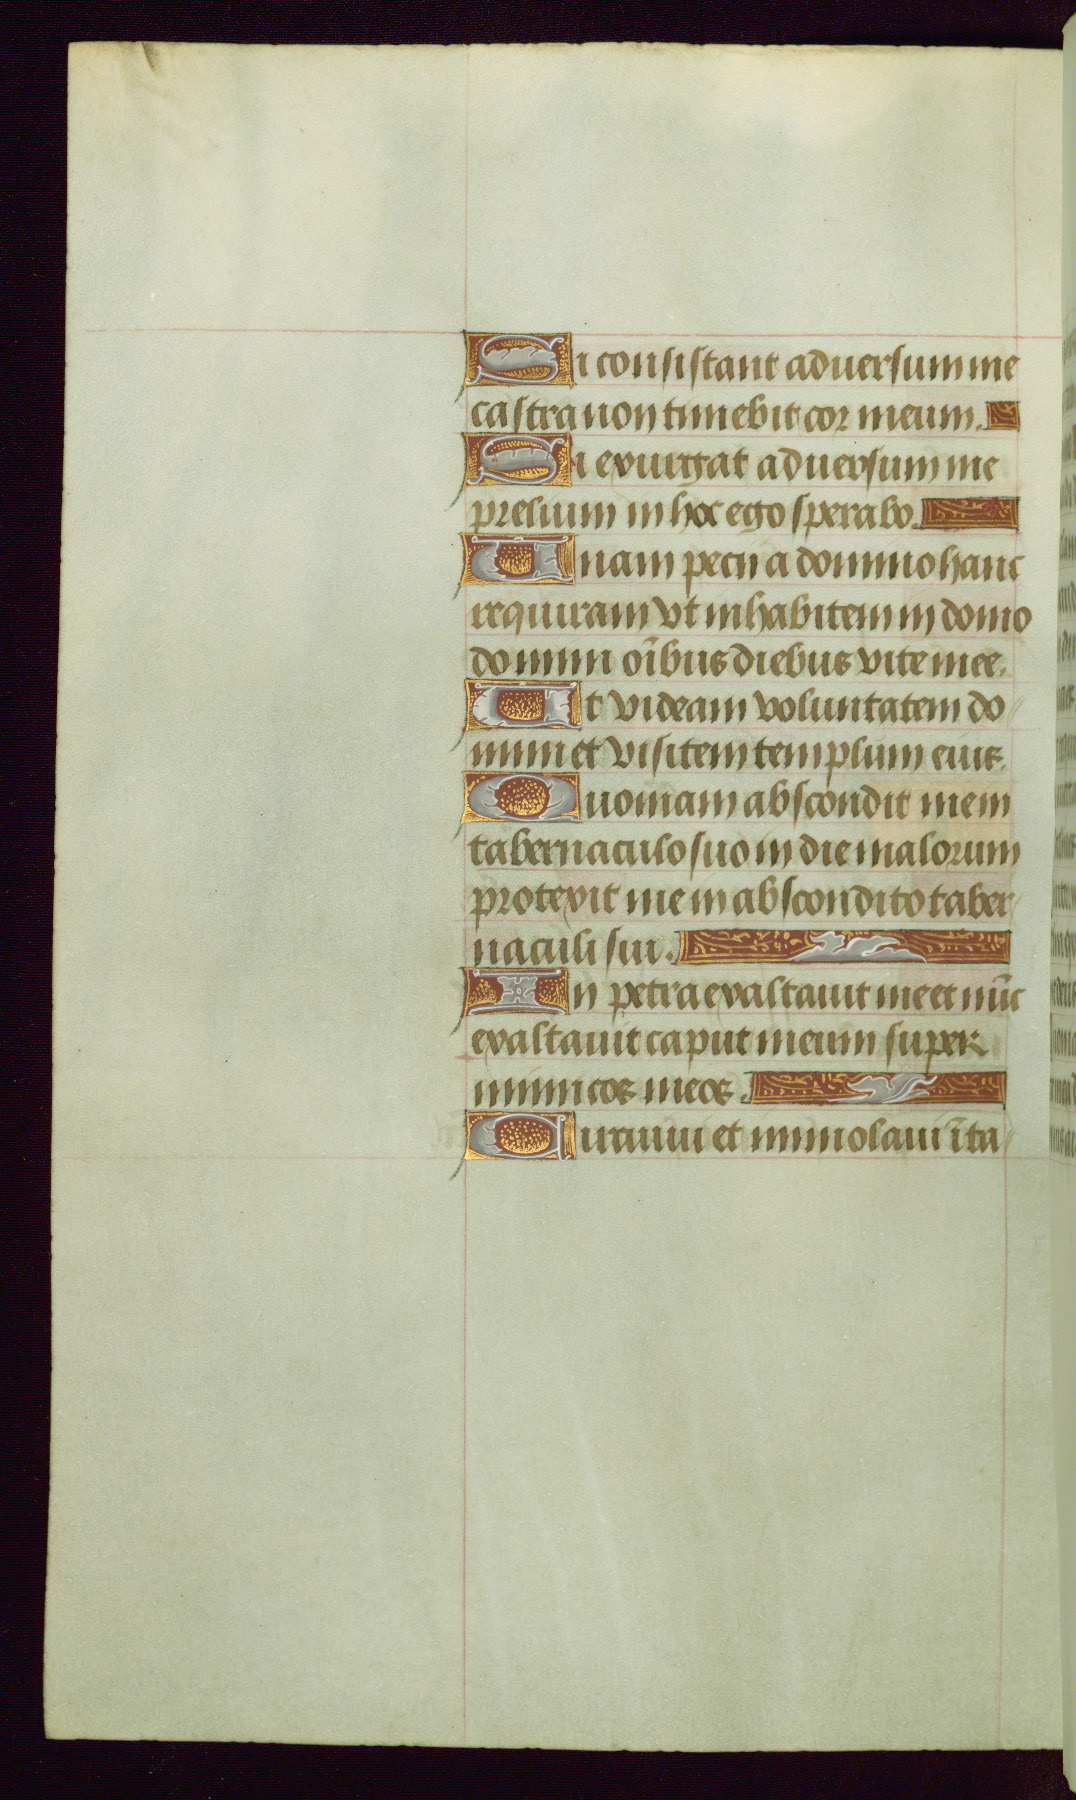 Si consistant aduersum me
castra non timebit cor meum.
Si exurgat aduersum me
prelium in hoc ego sperabo.
Unam pecii a domino hanc
requiram vt inhabitem in domo
domini oībus diebus vite mee.
Ut videam voluntatem do
mini et visitem templum eius.
Quoniam abscondit me in
tabernaculo suo in die malorum
protexit me in abscondito taber
naculi sui.
In petra exaltauit me et nūc
exaltauit caput meum super
inimicos meos.
Circuiui et immolaui ī ta